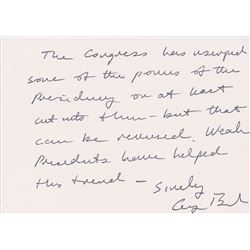 The Congress has usurped
some of the powers of the
Presidency or at least
cut into them - but that
can be reversed. Weak
Presidents have helped
this trend -
Sincerely